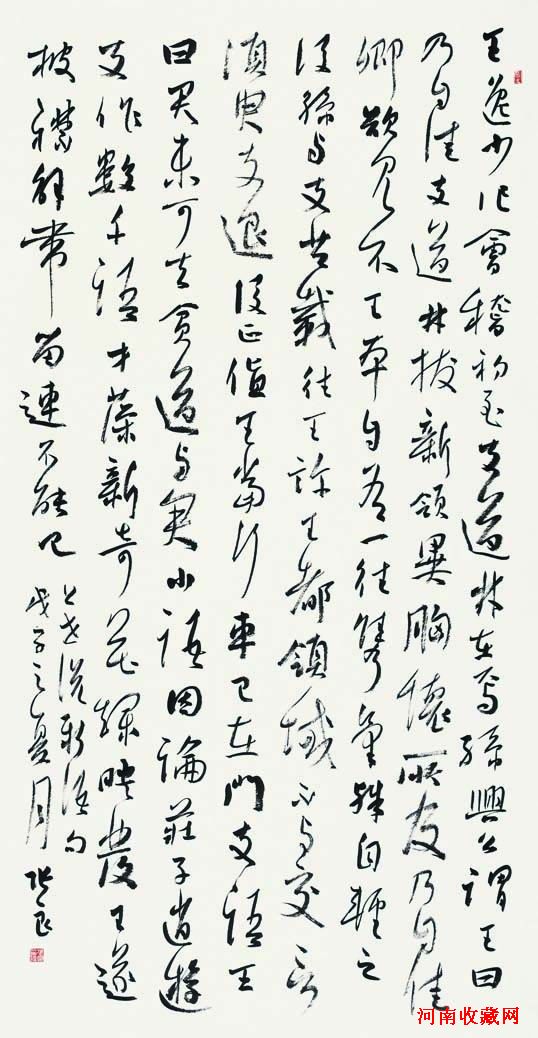 王逸少作會稽初至支道林在焉孫興公謂王曰
乃自佳支道林拔新領異胸懷所及乃自佳
卿欲見不王本自有一往雋氣殊自輕之
後孫與支共載往王許王都領域不與交言
須臾支退後正值王當行車已在門支語王
曰君未可去貧道與君小語因論莊子逍遙遊
支作數千語才藻新奇花爛映發王遂
披襟解帶留連不能已
世說新語句
戊子之夏月
河南收藏网